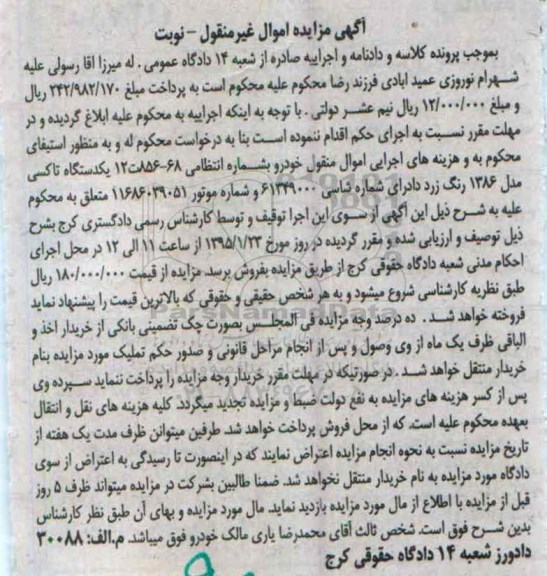 آگهی مزایده اموال غیرمنقول - نوبت
بموجب پرونده کلاسه و دادنامه و اجراییه صادره از شعبه ۱۴ دادگاه عمومی . له میرزا اقا رسولی علیه
شهرام نوروزی عمید ابادی فرزند رضا محکوم علیه محکوم است به پرداخت مبلغ ۲۴۲/۹۸۲/۱۷۰ ریال
و مبلغ ۱۲/۰۰۰/۰۰۰ ریال نیم عشر دولتی . با توجه به اینکه اجراییه به محکوم علیه ابلاغ گردیده و در
مهلت مقرر نسبت به اجرای حکم اقدام ننموده است بنا به درخواست محکوم له و به منظور استیفای
محکوم به و هزینه های اجرایی اموال منقول خودرو بشماره انتظامی ۶۸-۸۵۶ت۱۲ یکدستگاه تاکسی
مدل ۱۳۸۶ رنگ زرد دادرای شماره شاسی ۶۱۳۴۹۰۰۰ و شماره موتور ۱۱۶۸۶۰۳۹۰۵۱ متعلق به محکوم
علیه به شرح ذیل این آگهی از سوی این اجرا توقیف و توسط کارشناس رسمی دادگستری کرج بشرح
ذیل توصیف و ارزیابی شده و مقرر گردیده در روز مورخ ۱۳۹۵/۱/۲۳ از ساعت ۱۱ الی ۱۲ در محل اجرای
احکام مدنی شعبه دادگاه حقوقی کرج از طریق مزایده بفروش برسد. مزایده از قیمت ۱۸۰/۰۰۰/۰۰۰ ریال
طبق نظریه کارشناسی شروع میشود و به هر شخص حقیقی و حقوقی که بالاترین قیمت را پیشنهاد نماید
فروخته خواهد شد . ده درصد وجه مزایده فی المجلس بصورت چک تضمینی بانکی از خریدار اخذ و
الباقی ظرف یک ماه از وی وصول و پس از انجام مراحل قانونی و صدور حکم تملیک مورد مزایده بنام
خریدار منتقل خواهد شد . در صورتیکه در مهلت مقرر خریدار وجه مزایده را پرداخت ننماید سپرده وی
پس از کسر هزینه های مزایده به نفع دولت ضبط و مزایده تجدید میگردد. کلیه هزینه های نقل و انتقال
بعهده محکوم علیه است. که از محل فروش پرداخت خواهد شد. طرفین میتوانن ظرف مدت یک هفته از
تاریخ مزایده نسبت به نحوه انجام مزایده اعتراض نمایند که در اینصورت تا رسیدگی به اعتراض از سوی
دادگاه مورد مزایده به نام خریدار منتقل نخواهد شد. ضمنا طالبین بشرکت در مزایده میتواند ظرف ۵ روز
قبل از مزایده با اطلاع از مال مورد مزایده بازدید نماید. مال مورد مزایده و بهای آن طبق نظر کارشناس
بدین شرح فوق است. شخص ثالث آقای محمدرضا یاری مالک خودرو فوق میباشد. م.الف: ۳۰۰۸۸
دادورز شعبه ۱۴ دادگاه حقوقی کرج
ParsNamadData